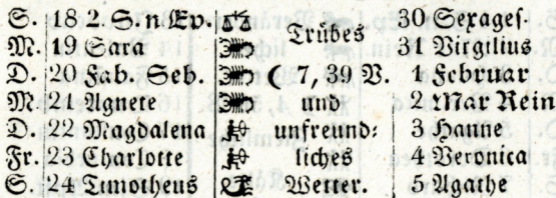 S. 18 2. S. n Ep. ♎ Trübes 30 Sexages.
M. 19 Sara ♏ 31 Virgilius
D. 20 Fab. Seb. ♏ ☾ 7, 39 V. 1 Februar
M. 21 Agnete ♏ und 2 Mar Rein
D. 22 Magdalena ♐ unfreund⸗ 3 Hanne
Fr. 23 Charlotte ♐ liches 4 Veronica
S. 24 Timotheus ♑ Wetter. 5 Agathe